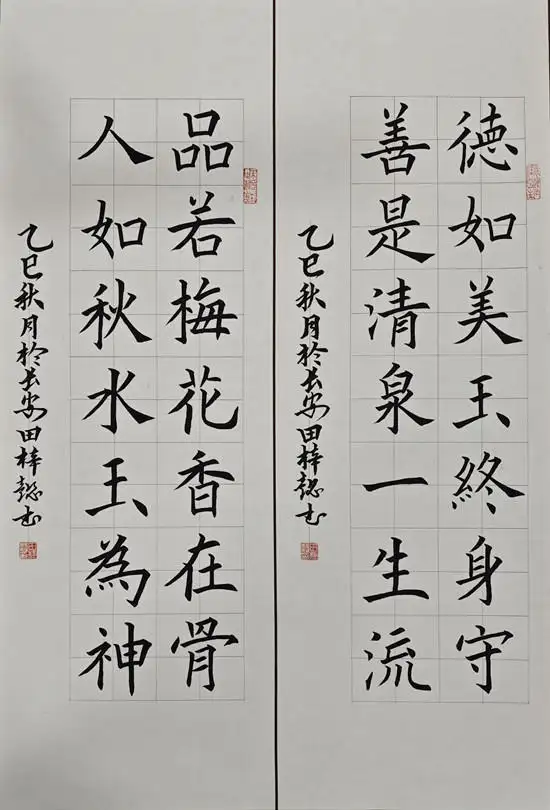 德如美玉終身守
善是清泉一生流
乙巳秋月於长安田梓懿书
品若梅花香在骨
人如秋水玉為神
乙巳秋月於长安田梓懿书